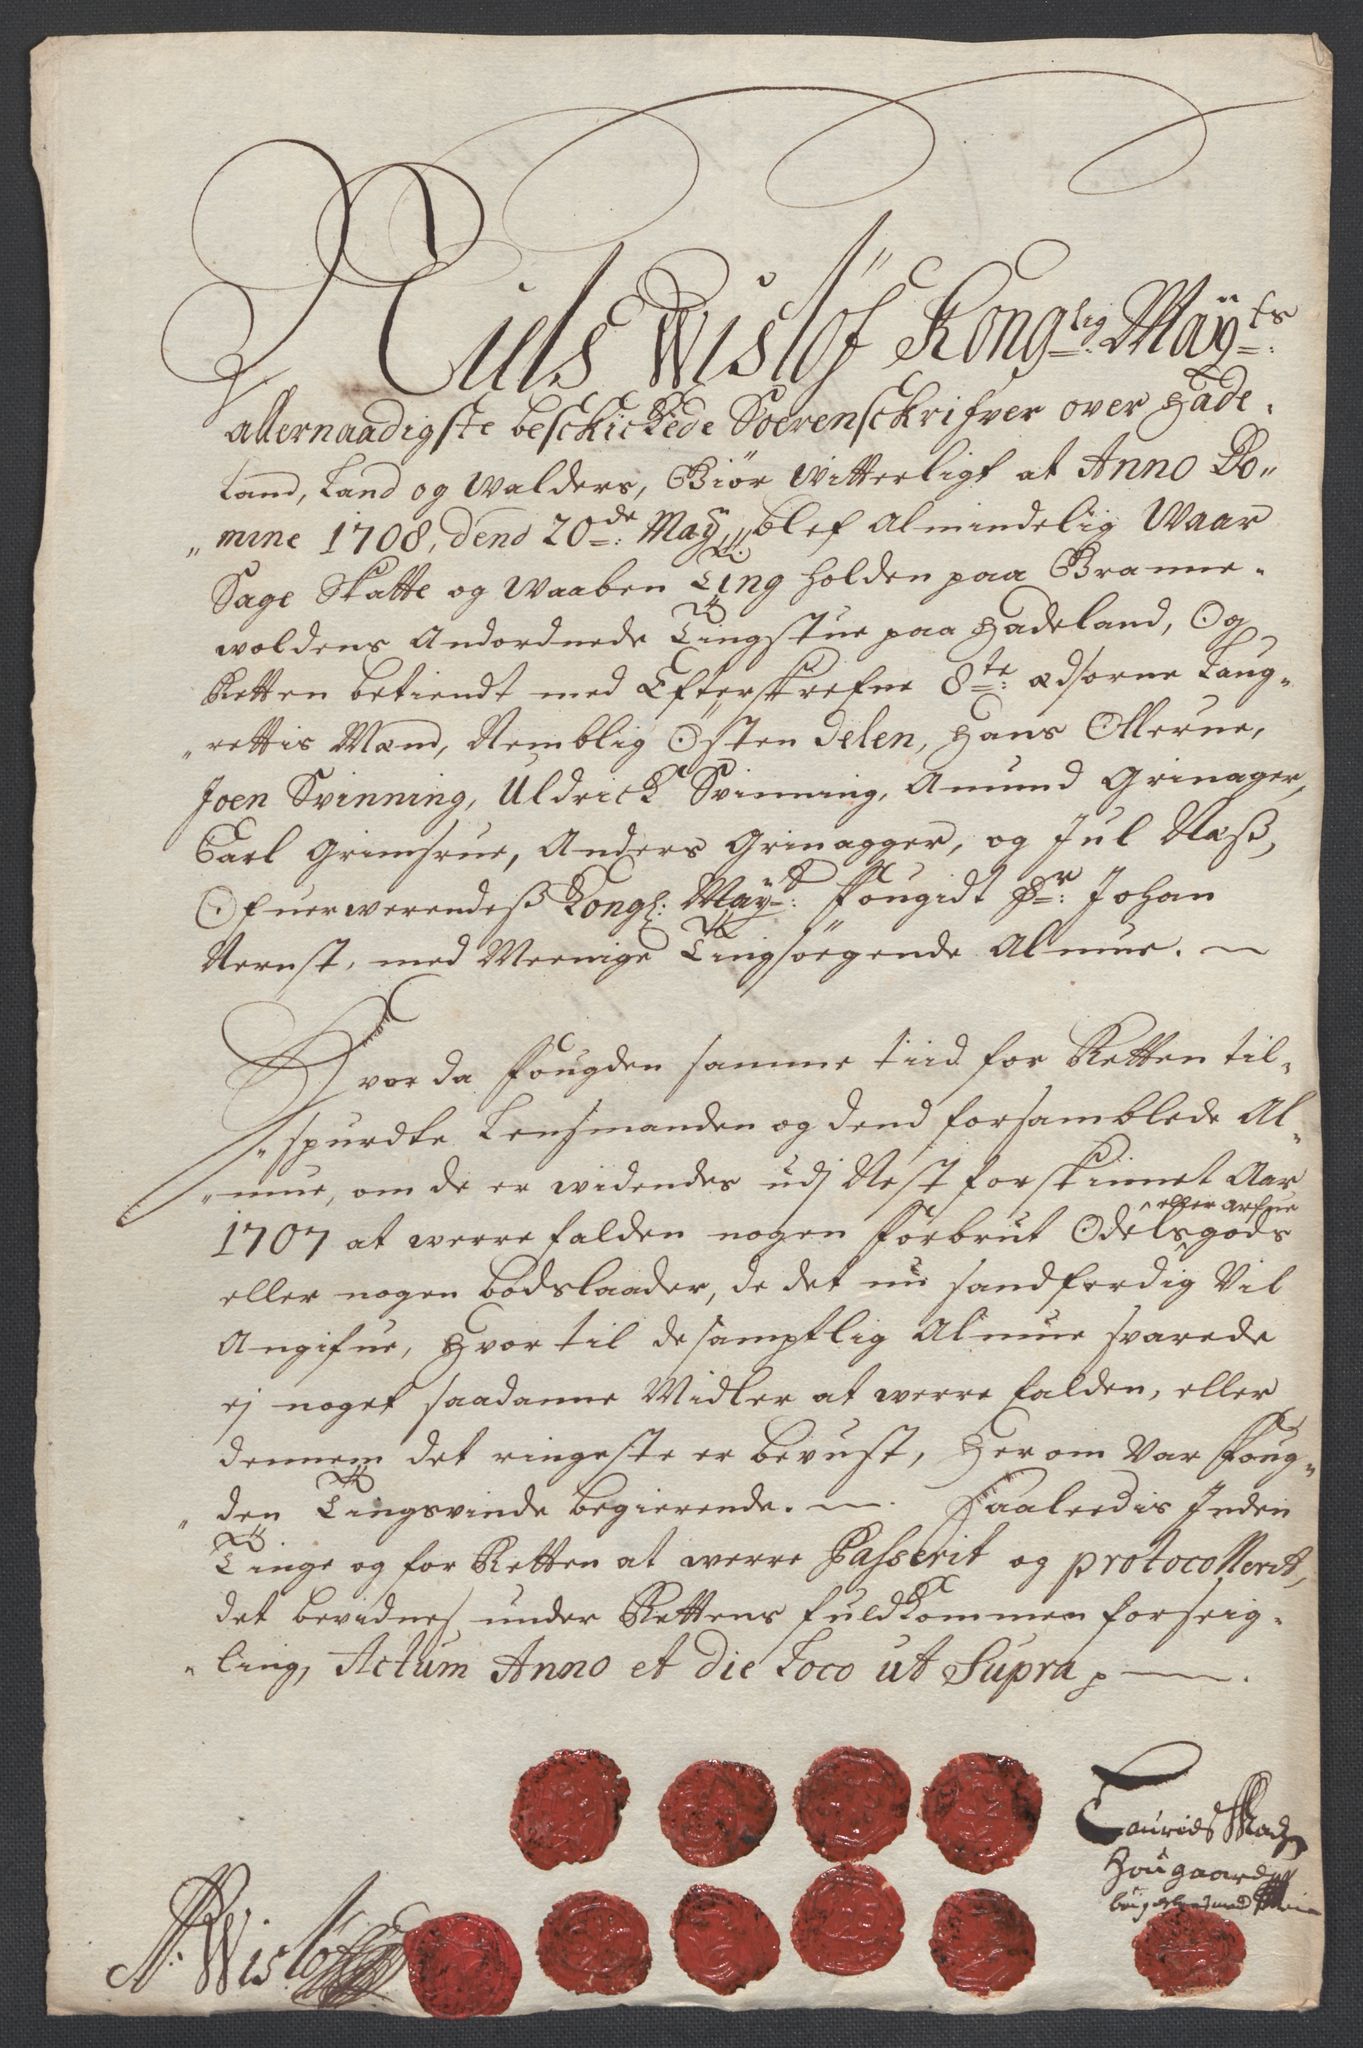 Niels Wislöf Kong:lig Mayts:
allernaadigste beschickede Soerenschrifver over Hade-
land, Land og Walders, Giör Witterligt at Anno Do-
mine 1708, dend 20de: May, blef Almindelig Waar
Sage Skatte og Waaben Ting holden paa Branne-
woldens Andordnede Tingstue paa Hadeland, Og
Retten betiendt med Efterskrefne 8te: Edsorne Laug-
rettis Mænd, Nemblig Østen Velen, Hans Ollerne,
Joen Svinning, Uldrick Svinning, Amund Grinager,
Carl Grimsrue, Anders Grinagger, og Jul Næss,
Ofuerwerendess Kongl: Mayts: Fougidt Hr: Johan
Nernst, med Meenige Tingsøgende Almue.
Hvor da Fougden samme tiid for Retten til-
spurdte Lensmanden og dend forsamblede Al-
mue, om de er widendes udj Nest forskinnet Aar
1707 at werre falden nogen Forbrut Odels eller arfue gods
eller nogen bødslaader, de det nu sandferdig Vil
Angifue, Hvor til de samptlig Almue svarede
ej noget saadanne Midler at werre falden, eller
dennem det ringeste er bevust, Her om Var Foug-
den Tingsvinde begierende. Saaleedis Inden
Tinge og for Retten at werre Passerit og protocollerit,
det bevidnes under Rettens fuldkommen forseig-
ling, Actum Anno et die Loco ut Supra
N: Wislöf
Laurids Madz
Hougaard